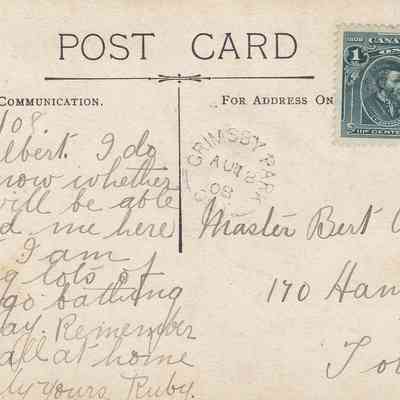 POST CARD
COMMUNICATION.
FOR ADDRESS ON
1908 CANA
1
GRIMSBY PARK
AU 08
108.
lbert. I do
now whether
will be able
d me here
I am
g lots of
go bathing
ay. Remember
all at home
ly yours, Ruby.
Master Bert
170 Han
To